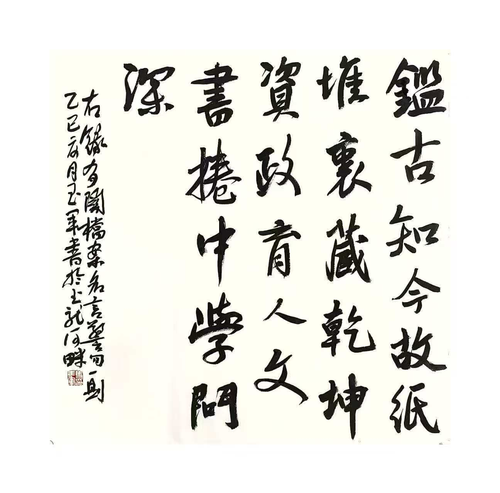 鑑古知今故紙
堆裏藏乾坤
資政育人文
書捲中學問
深
右錄有關檔案名言警句一則
乙巳月玉軍書於龍河畔